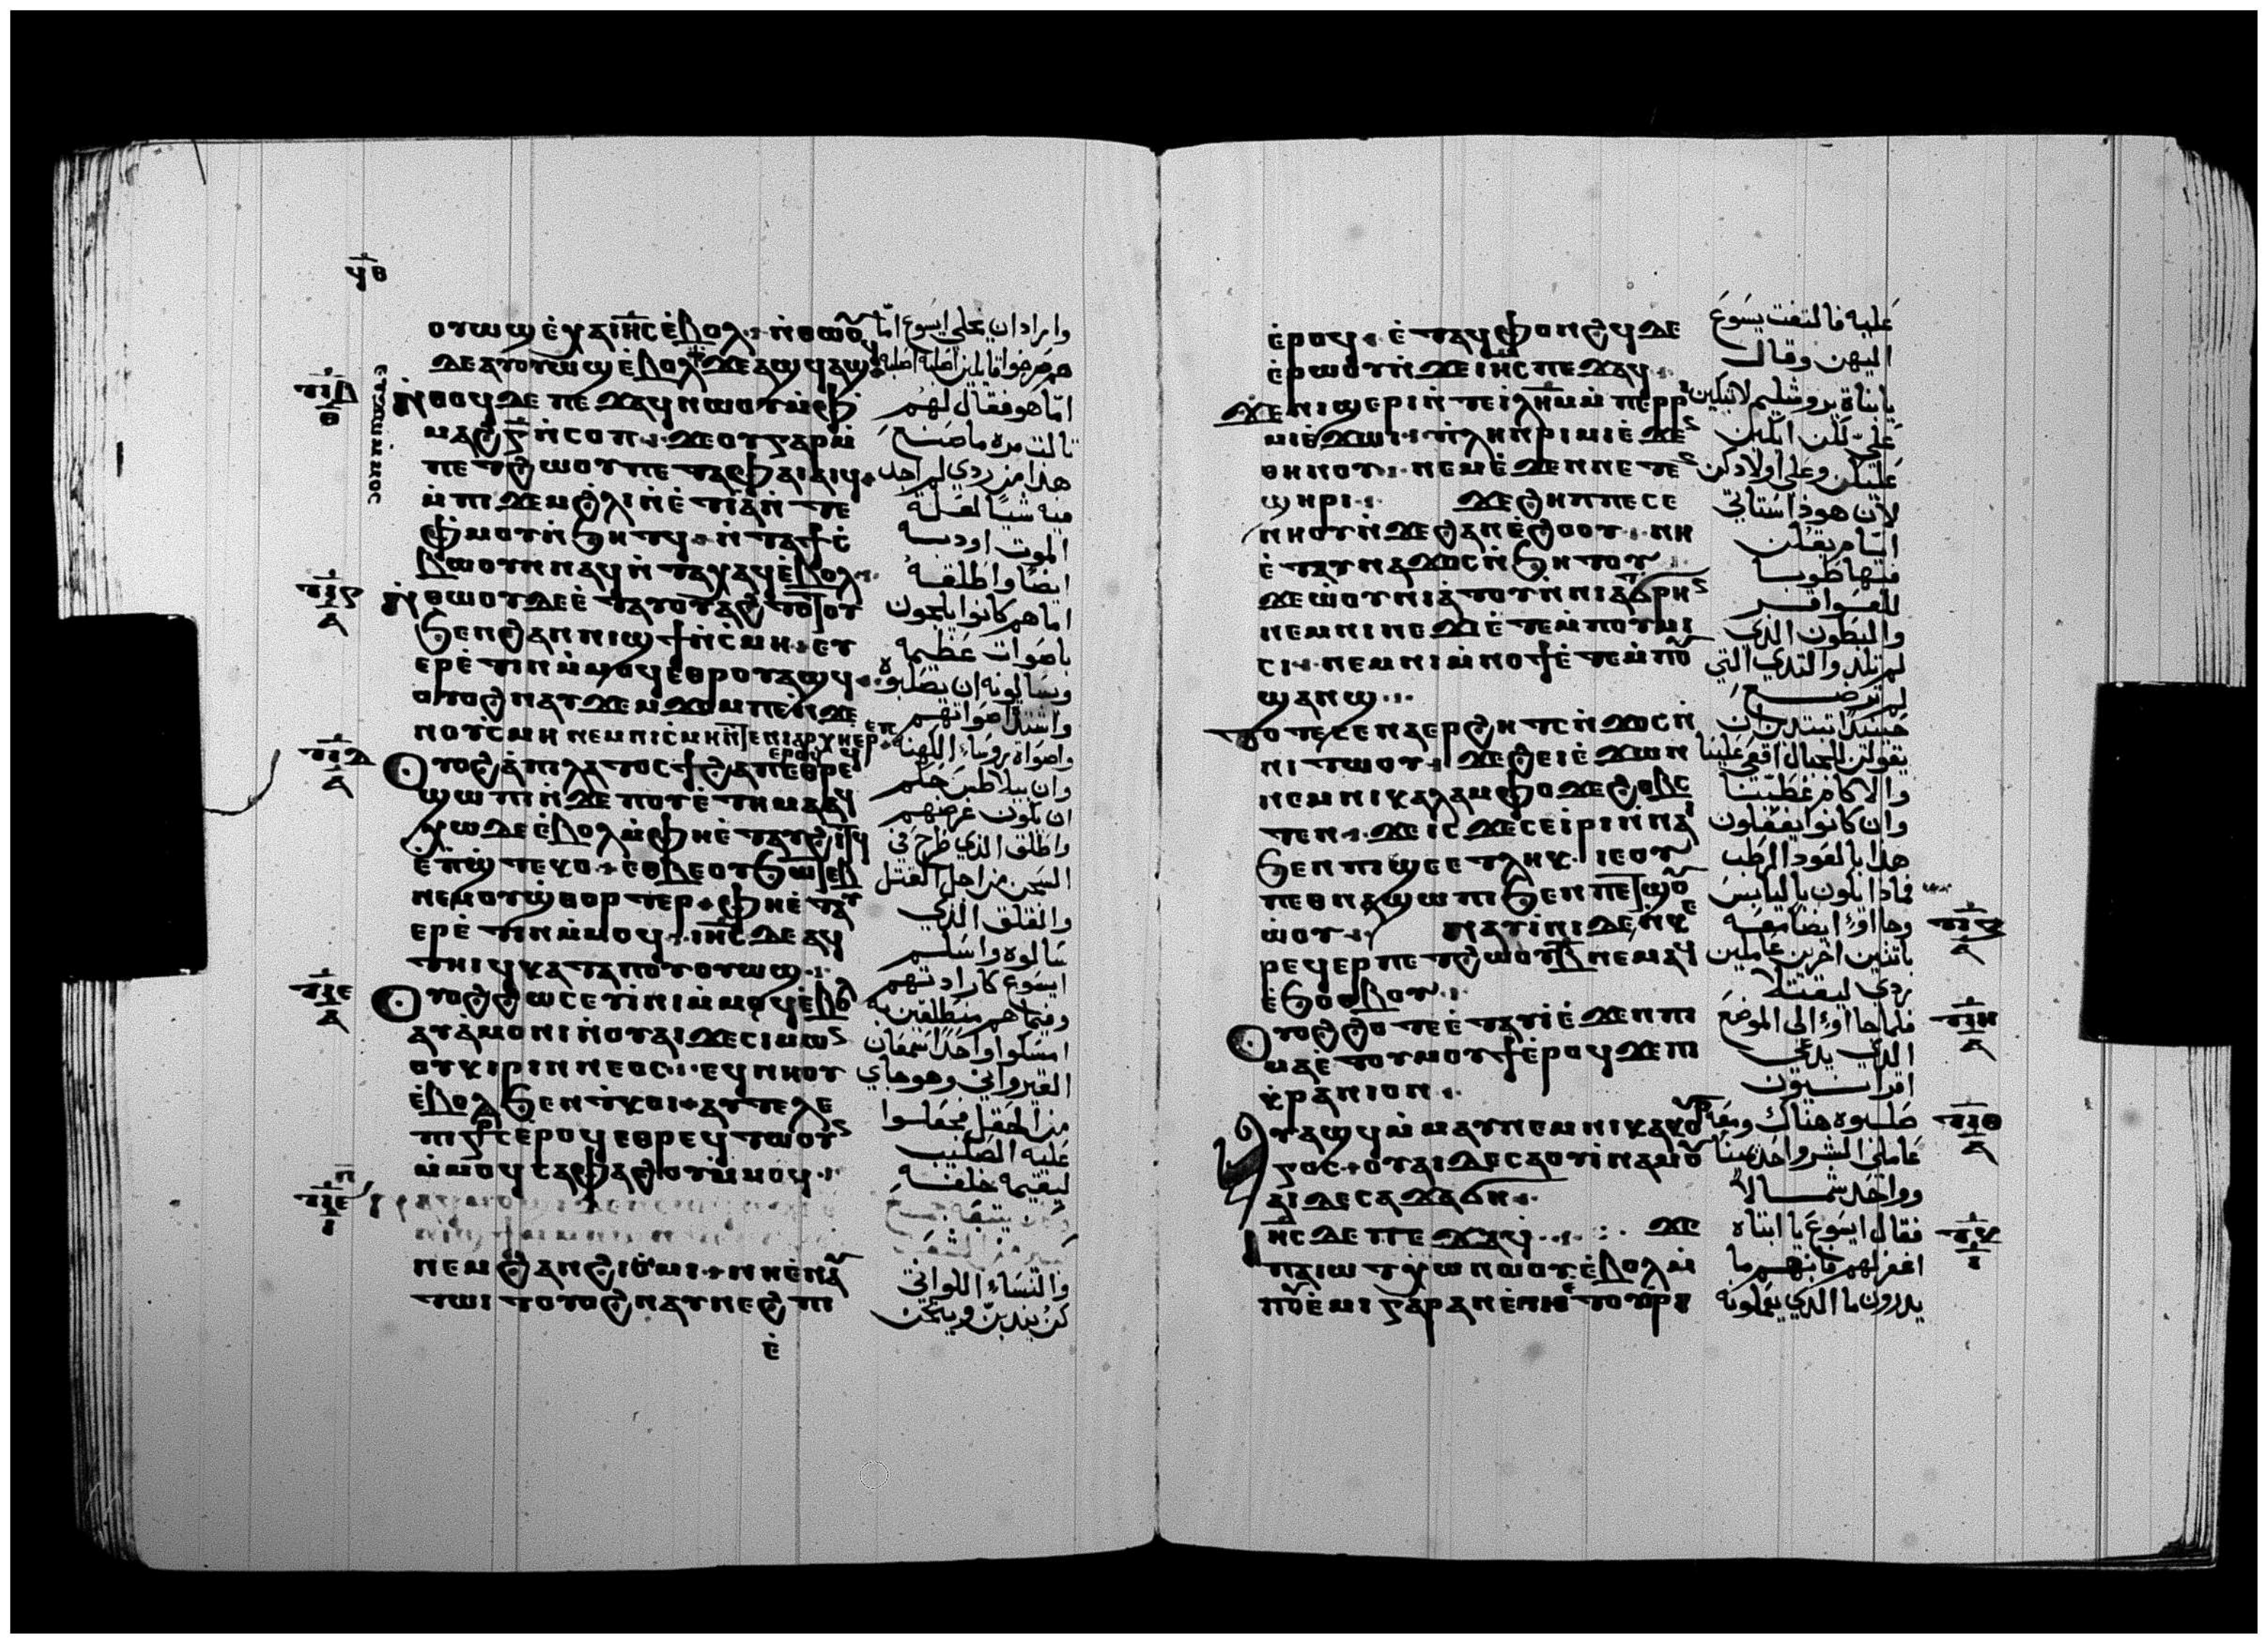 ϥⲑ
ⲟⲩⲱϣ ⲉ̀ⲭⲁ ⲓⲏ̅ⲥ ⲉ̀ⲃⲟⲗ ⲛ̀ⲑⲱⲟⲩ
ⲇⲉ ⲁⲩⲟⲩⲱϣ ⲉ̀ⲃⲟⲗ ϫⲉ ⲁϣϥ ⲁϣϥ
ⲛ̀ⲑⲟϥ ⲇⲉ ⲡⲉϫⲁϥ ⲛⲱⲟⲩ ⲙ̀ⲫ
ⲙⲁϩ ⲅ̅ ⲛ̀ⲥⲟⲡ ϫⲉ ⲟⲩ ⲅⲁⲣ ⲙ̀
ⲡⲉⲧϩⲱⲟⲩ ⲡⲉⲧⲁ ⲫⲁⲓ ⲁⲓϥ
ⲙ̀ⲡⲓϫⲉⲙ ϩⲗⲓ ⲛ̀ⲉ̀ⲧⲓⲁ ⲛ̀ⲧⲉ
ⲫ̀ⲙⲟⲩ ⲛ̀ϧⲏⲧϥ ⲛ̀ⲧⲁϯⲥ̀
ⲃⲱ ⲟⲩⲛ ⲛⲁϥ ⲛ̀ⲧⲁⲭⲁϥ ⲉ̀ⲃⲟⲗ
ⲛ̀ⲑⲱⲟⲩ ⲇⲉ ⲉ̀ⲛⲁⲩⲟⲩⲁϩⲧⲟⲧⲟⲩ
ϧⲉⲛ ϩⲁⲛⲛⲓϣϯ ⲛ̀ⲥ̀ⲙⲏ ⲉⲩ
ⲉⲣⲉ̀ⲧⲓⲛ ⲙ̀ⲙⲟϥ ⲉⲑⲣⲟⲩⲁϣϥ
ⲟⲩⲟϩ ⲛⲁⲩϫⲉⲙϫⲟⲙ ⲡⲉ ⲛ̀ϫⲉ
ⲛⲟⲩⲥ̀ⲙⲏ ⲛⲉⲙ ⲛⲓⲥ̀ⲙⲏ ⲛ̀ⲧⲉ ⲛⲓⲁⲣⲭⲏⲉⲣⲉⲩⲥ
ⲟⲩⲟϩ ⲁ̀ ⲡⲓⲗⲁⲧⲟⲥ ϯϩⲁⲡ ⲉⲑⲣⲉ
ϣⲱⲡⲓ ⲛ̀ϫⲉ ⲡⲟⲩⲉ̀ⲧⲏⲙⲁ ⲁϥ
ⲭⲱ ⲇⲉ ⲉ̀ⲃⲟⲗ ⲙ̀ⲫⲏⲉ̀ⲧⲁⲩϩⲓⲧϥ
ⲉ̀ⲡ̀ϣⲧⲉⲕⲟ ⲉⲑⲃⲉ ⲟⲩϧⲱⲧⲉⲃ
ⲛⲉⲙ ⲟⲩϣ̀ⲑⲟⲣⲧⲉⲣ ⲫⲏⲉ̀ⲧⲁⲩ
ⲉⲣⲉ̀ⲧⲓⲛ ⲙ̀ⲙⲟϥ ⲓⲏ̅ⲥ ⲇⲉ ⲁϥ
ⲧⲏⲓϥ ⲕⲁⲧⲁ ⲡⲟⲩⲟⲩⲱϣ
ⲟⲩⲟϩ ϩⲱⲥ ⲉⲩⲓ̀ⲛⲓ ⲙ̀ⲙⲟϥ ⲉ̀ⲃⲟⲗ
ⲁⲩⲁ̀ⲙⲟⲛⲓ ⲛ̀ⲟⲩⲁⲓ ϫⲉ ⲥⲓⲙⲱⲛ
ⲟⲩⲕⲓⲣⲓⲛⲛⲉⲟⲥ ⲉϥⲛⲏⲟⲩ
ⲉ̀ⲃⲟⲗ ϧⲉⲛ ⲧ̀ⲕⲟⲓ ⲁⲩⲧⲁⲗⲉ
ⲡⲓⲥⲧⲁⲩⲣⲟⲥ ⲉ̀ⲣⲟϥ ⲉⲑⲣⲉϥⲧⲱⲟⲩⲛ
ⲙ̀ⲙⲟϥ ⲥⲁⲫⲁϩⲟⲩ ⲙ̀ⲙⲟϥ
ⲛⲉⲙ ϩⲁⲛϩⲓⲟ̀ⲙⲓ ⲛⲏⲉ̀ⲛⲁⲩ
ⲧⲱⲓⲧ ⲟⲩⲟϩ ⲛⲁⲩⲛⲉϩⲡⲓ
ⲉ̀
واراد ان يخلي ايسوع اما
هم صرخوا قايلين اصلبه اصلبه
اما هو فقال لهم
ثالت مره ما صنع
هذا من ردي لم اجد
فيه شيا لعلة
الموت اودبه
ايضا واطلقه
اما هم كانوا يلجون
باصوات عظيمه
ويسالونه ان يصلبوه
واشتد اصواتهم
واصواة روساء الكهنه
وان بيلاطس حكم
ان يكون غرضهم
واطلق الذي طرح في
السجن من اجل القتل
والقلق الذي
سالوه واسلم
ايسوع كارادتهم
وفيما هم منطلقين به
امسكوا واحدا سمعان
القيرواني وهو جاي
من الحقل فجعلوا
عليه الصليب
ليقيمه خلفه
والنساء اللواتي
كن يندبن وينحن
ⲉ̀ⲣⲟϥ ⲉ̀ⲧⲁϥⲫⲟⲛϩϥ ⲇⲉ
ⲉ̀ⲣⲱⲟⲩ ⲛ̀ϫⲉ ⲓⲏ̅ⲥ ⲡⲉϫⲁϥ
ϫⲉ ⲛⲓϣⲉⲣⲓ ⲛ̀ⲧⲉ ⲓⲗⲏ̅ⲙ ⲙ̀ⲡⲉⲣⲣ
ⲓⲙⲓ ⲉ̀ϫⲱⲓ ⲡⲗⲏⲛ ⲣⲓⲙⲓ ⲉ̀ϫⲉⲛ
ⲑⲏⲛⲟⲩ ⲛⲉⲙ ⲉ̀ϫⲉⲛ ⲛⲉⲧⲉⲛ
ϣⲏⲣⲓ ϫⲉ ϩⲏⲡⲡⲉ ⲥⲉ
ⲛⲏⲟⲩ ⲛ̀ϫⲉ ϩⲁⲛⲉ̀ϩⲟⲟⲩ ⲛⲏ
ⲉ̀ⲧⲟⲩⲛⲁϫⲟⲥ ⲛ̀ϧⲏⲧⲟⲩ
ϫⲉ ⲱ̀ⲟⲩⲛⲓⲁ̀ⲧⲟⲩ ⲛ̀ⲛⲓⲁⲧϭⲣⲏⲛ
ⲛⲉⲙ ⲛⲓⲛⲉϫⲓ ⲉ̀ⲧⲉ ⲙ̀ⲡⲟⲩⲙⲓ
ⲥⲓ ⲛⲉⲙ ⲛⲓⲙ̀ⲛⲟϯ ⲉ̀ⲧⲉ ⲙ̀ⲡⲟⲩ
ϣⲁⲛϣ
ⲧⲟⲧⲉ ⲥⲉⲛⲁⲉⲣϩⲏⲧⲥ ⲛ̀ϫⲟⲥ ⲛ̀
ⲛⲓⲧⲱⲟⲩ ϫⲉ ϩⲉⲓ ⲉ̀ϫⲱⲛ
ⲛⲉⲙ ⲛⲓⲕⲁⲗⲁⲙⲫⲟ ϫⲉ ϩⲟⲃⲥ
ⲧⲉⲛ ϫⲉ ⲓⲥϫⲉ ⲥⲉⲓⲣⲓ ⲛ̀ⲛⲁⲓ
ϧⲉⲛ ⲡⲓϣⲉ ⲉⲧⲗⲏⲕ ⲓⲉ ⲟⲩ
ⲡⲉⲑⲛⲁϣⲱⲡⲓ ϧⲉⲛ ⲡⲉⲧϣⲟⲩ
ⲱ̀ⲟⲩ ⲛⲁⲩⲓ̀ⲛⲓ ⲇⲉ ⲛ̀ⲕⲉ
ⲣⲉϥⲉⲣⲡⲉⲧϩⲱⲟⲩ ⲃ̅ ⲛⲉⲙⲁϥ
ⲉ̀ϧⲟⲑⲃⲟⲩ
ⲟⲩⲟϩ ϩⲟⲧⲉ ⲉ̀ⲧⲁⲩⲓ̀ ⲉ̀ϫⲉⲛ ⲡⲓ
ⲙⲁ ⲉ̀ⲧⲟⲩⲙⲟⲩϯ ⲉ̀ⲣⲟϥ ϫⲉ ⲡⲓ
ⲕ̀ⲣⲁⲛⲓⲟⲛ
ⲁⲩⲁϣϥ ⲙ̀ⲙⲁⲩ ⲛⲉⲙ ⲛⲓⲕⲁⲕⲟⲩⲣ
ⲅⲟⲥ ⲟⲩⲁⲓ ⲇⲉ ⲥⲁⲟⲩⲓ̀ⲛⲁⲙ ⲟⲩ
ⲁⲓ ⲇⲉ ⲥⲁϫⲁϭⲏ
ⲓⲏ̅ⲥ ⲇⲉ ⲡⲉϫⲁϥ ϫⲉ
ⲡⲁⲓⲱⲧ ⲭⲱ ⲛⲱⲟⲩ ⲉ̀ⲃⲟⲗ ⲛ̀
ⲡⲟⲩⲉ̀ⲙⲓ ⲅⲁⲣ ⲁⲛ ⲉ̀ⲡⲏⲉ̀ⲧⲟⲩⲣⲓ
عليه فالتفت يسوع
اليهن وقال
يا بناة يروشليم لا تبكين
علي لكن ابكين
عليكن وعلى اولادكن
لان هوذا ستاتي
ايام يقلن
فيها طوبا
للعواقر
والبطون الذي
لم تلد والتدي التي
لم ترضع
حينيذ تبتدين ان
تقولن للجبال اقعي علينا
والاكام غطينا
وان كانوا يفعلون
هذا بالعود الرطب
فماذا يكون باليابس
وجاؤا ايضا معه
باتنين اخرين عاملين
ردي ليقتلا
فلما جاؤا الى الموضع
الذي يدعى
اقرانيون
صلبوه هناك ومعه
عاملي الشر واحد يمينا
وواحد شمالا
فقال ايسوع يا ابتاه
اغفر لهم فانهم ما
يدرون ما الذي يعملونه